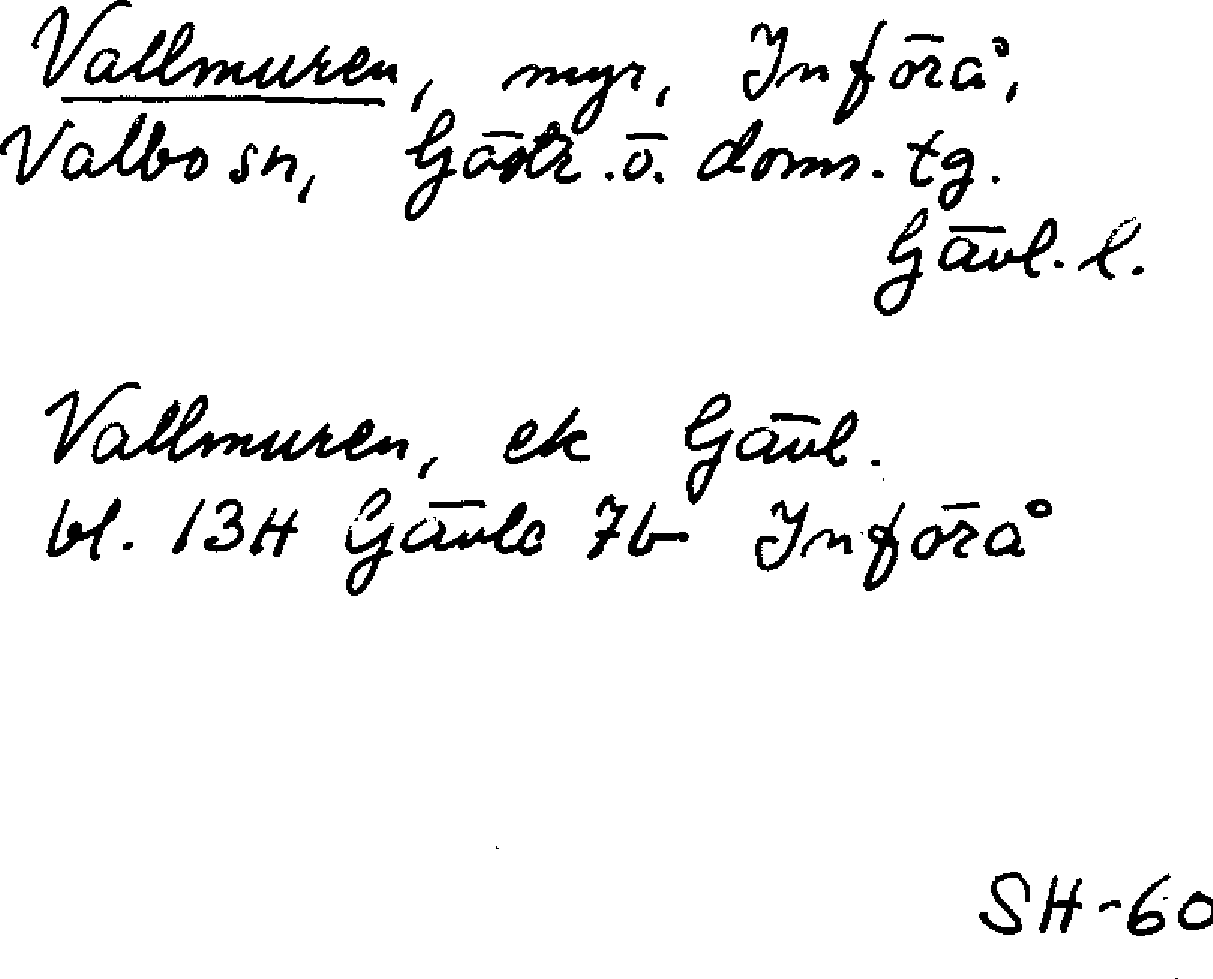 Vallmuren, myr, Införå,
Valbo sn, Gästr. ö. doms. tg.
Gävl. l.
Vallmuren, ek Gävl.
bl. 13H Gävle 7b Införå
SH-60